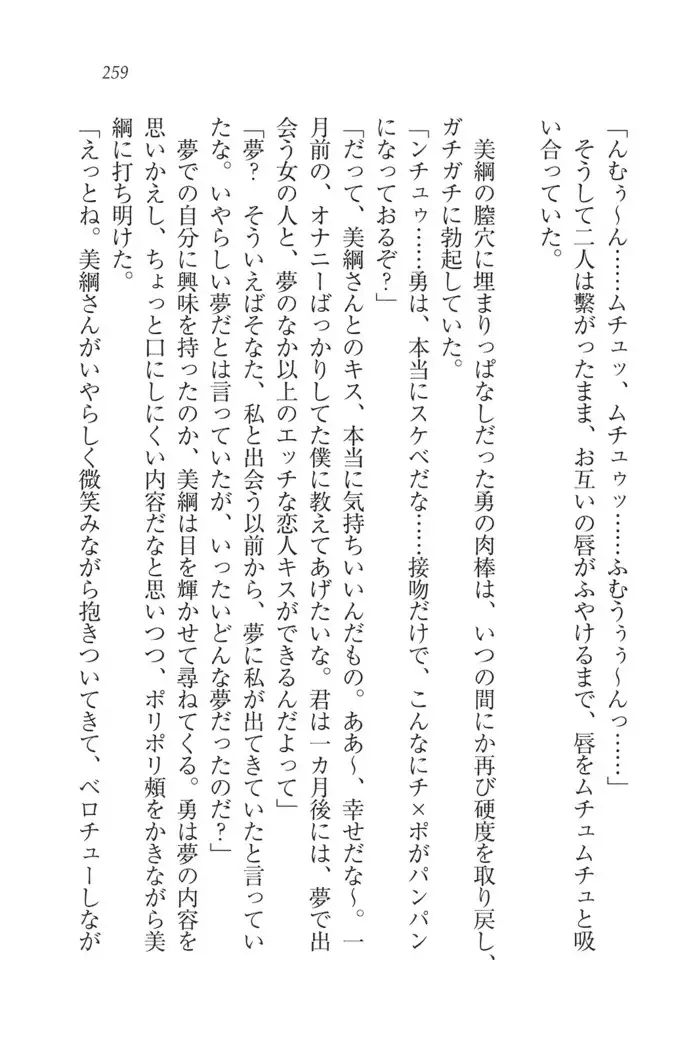 259
「んむぅ〜ん……ムチュッ、ムチュゥッ……ふむうぅぅ〜んっ……」
そうして二人は繋がったまま、お互いの唇がふやけるまで、唇をムチュムチュと吸
い合っていた。
美綱の膣穴に埋まりっぱなしだった勇の肉棒は、いつの間にか再び硬度を取り戻し、
ガチガチに勃起していた。
「ンチュゥ……勇は、本当にスケベだな……接吻だけで、こんなにチ×ポがパンパン
になっておるぞ？」
「だって、美綱さんとのキス、本当に気持ちいいんだもの。ああ〜、幸せだな〜。一
月前の、オナニーばっかりしてた僕に教えてあげたいな。君は一カ月後には、夢で出
会う女の人と、夢のなか以上のエッチな恋人キスができるんだよって」
「夢？　そういえばそなた、私と出会う以前から、夢に私が出てきていたと言ってい
たな。いやらしい夢だとは言っていたが、いったいどんな夢だったのだ？」
夢での自分に興味を持ったのか、美綱は目を輝かせて尋ねてくる。勇は夢の内容を
思いかえし、ちょっと口にしにくい内容だなと思いつつ、ポリポリ頰をかきながら美
綱に打ち明けた。
「えっとね。美綱さんがいやらしく微笑みながら抱きついてきて、ベロチューしなが